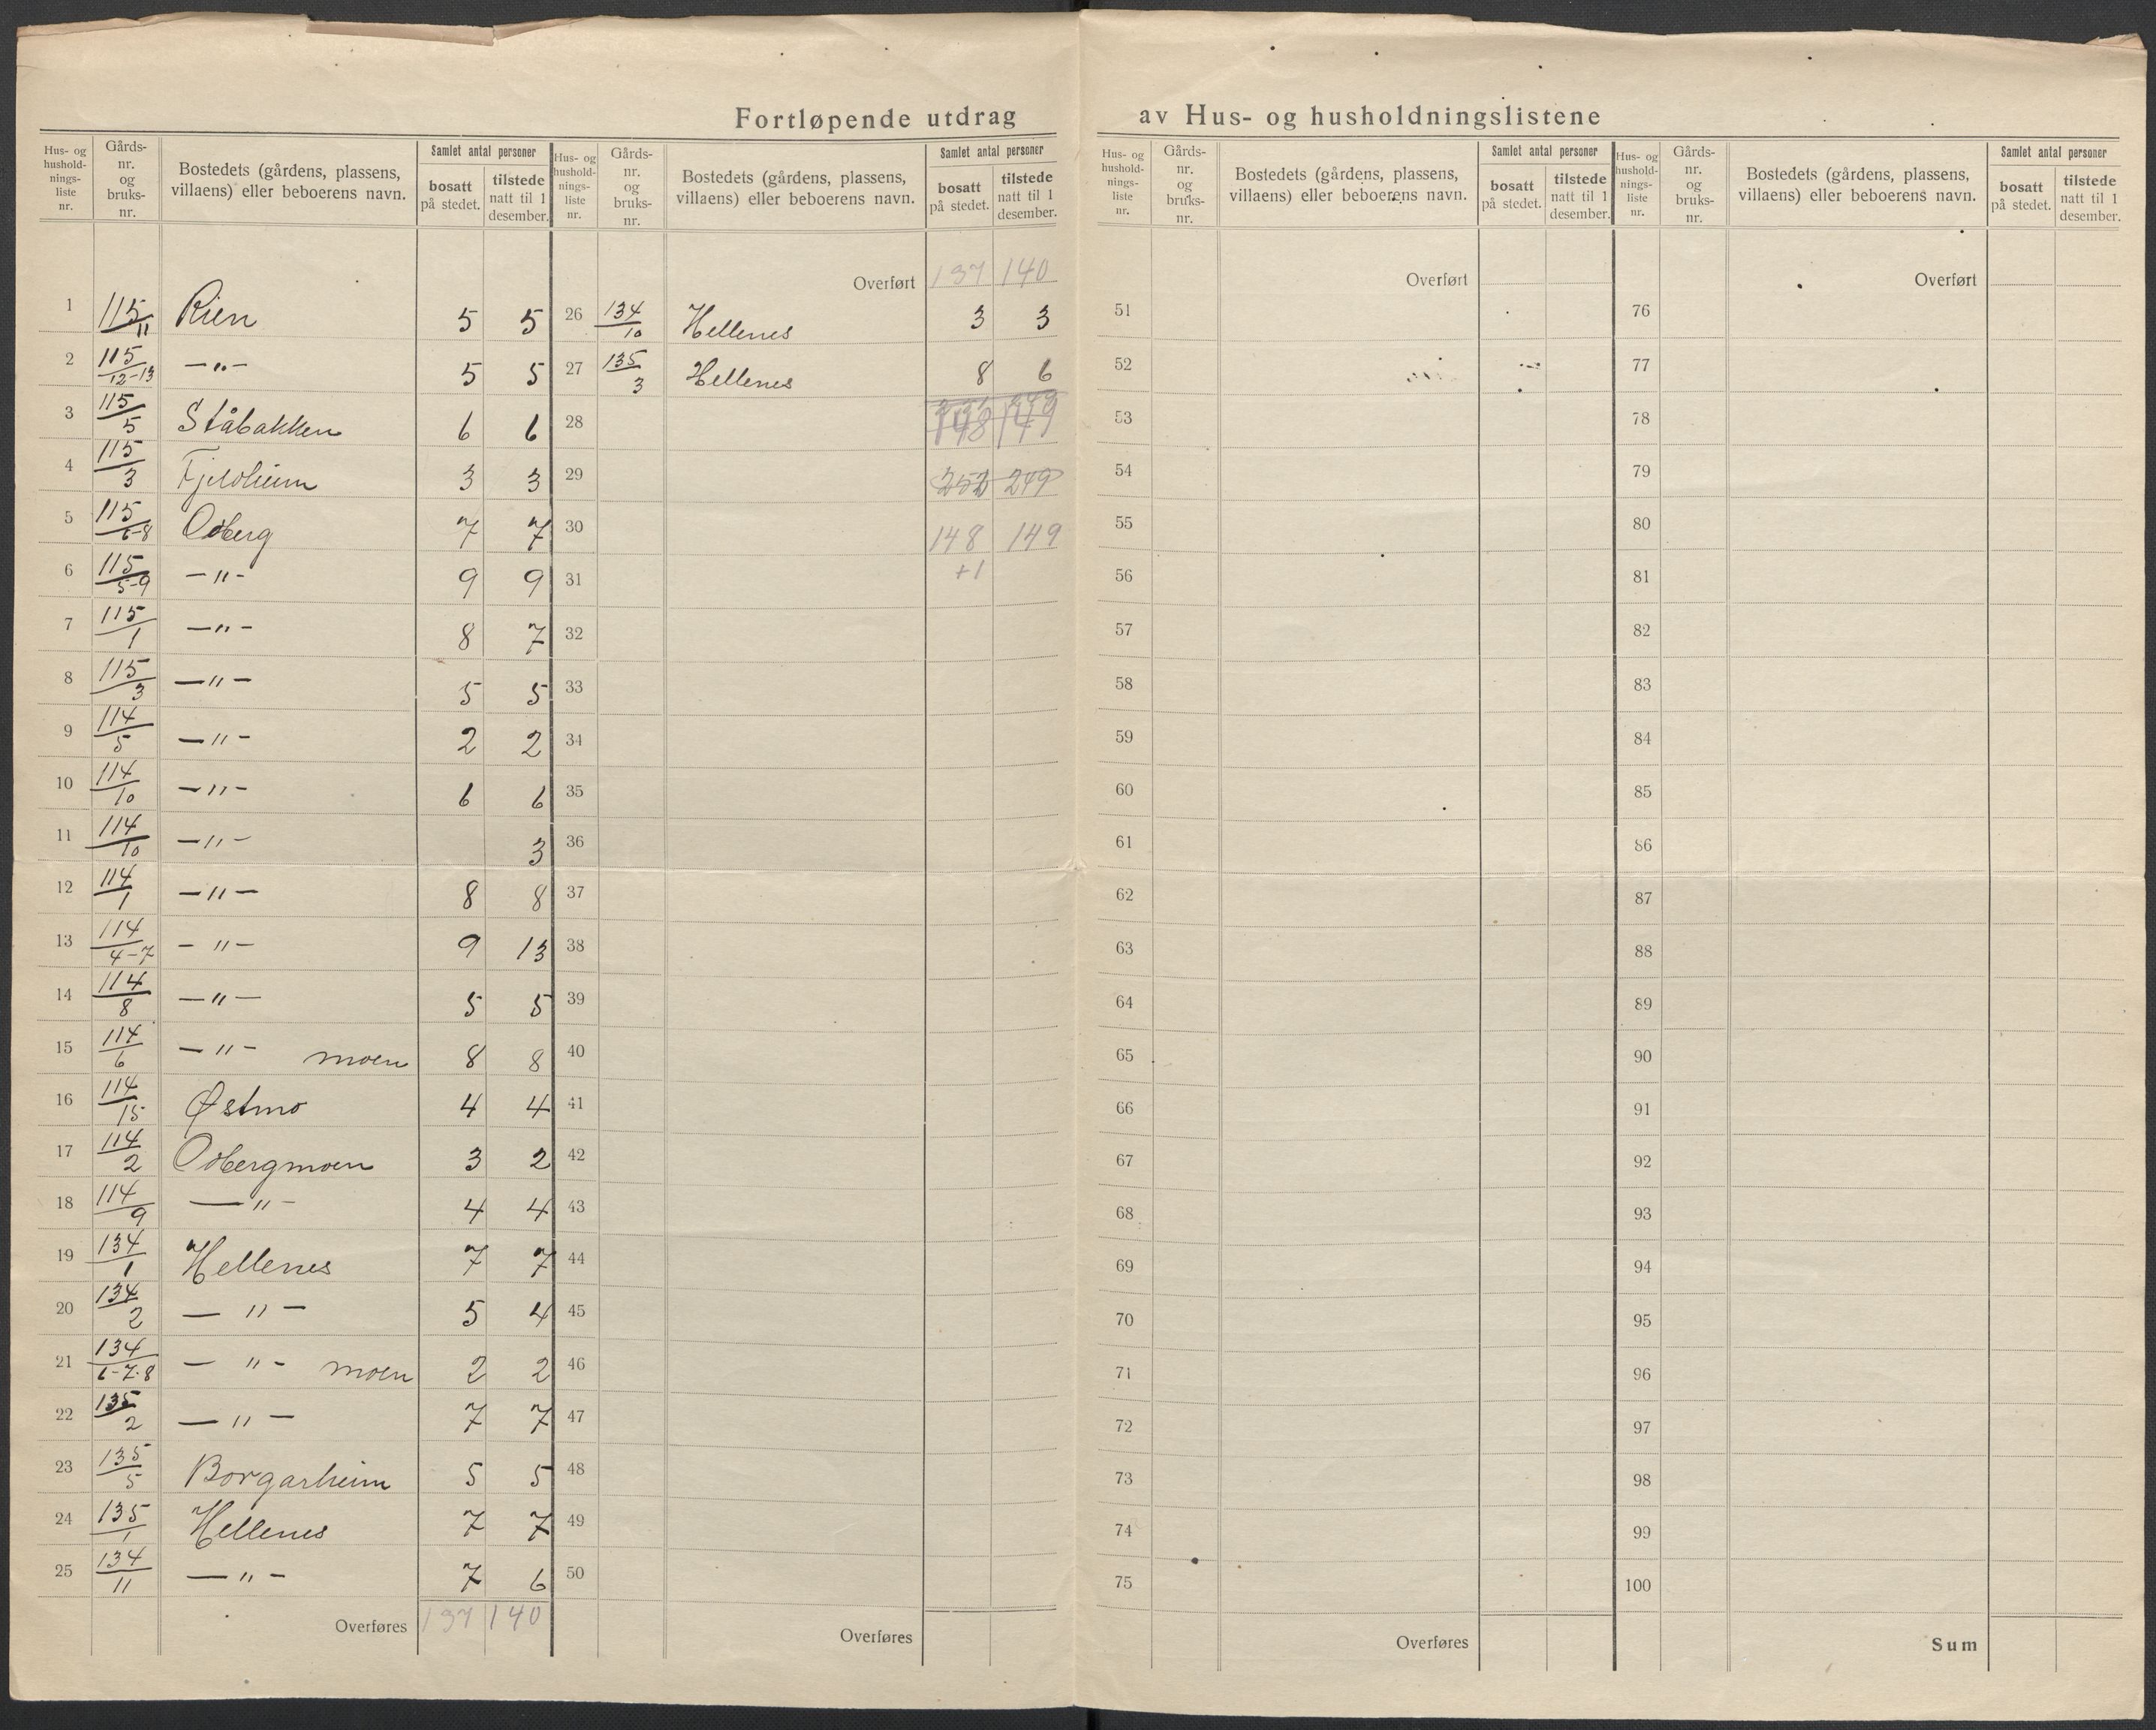 Fortløpende utdrag av Hus- og husholdningslistene
Hus- og hushold-nings-liste nr. | Gårds-nr. og bruks-nr. | Bostedets (gårdens, plassens, villaens) eller beboerens navn. | Samlet antal personer | bosatt på stedet. | tilstede natt til 1 desember.
1 115/11 Rien 5 5
2 115/12-13 —„— 5 5
3 115/5 Ståbakken 6 6
4 115/3 Fjeldheim 3 3
5 115/6-8 Odberg 7 7
6 115/5-9 —"- 9 9
7 115/1 —"- 8 7
8 115/3 —"— 5 5
9 114/5 —"- 2 2
10 114/10 —"- 6 6
11 114/10 —"— 3
12 114/1 —"— 8 8
13 114/4-7 -"- 9 13
14 114/8 —"— 5 5
15 114/6 —"- moen 8 8
16 114/15 Østmo 4 4
17 114/2 Odbergmoen 3 2
18 114/9 —"- 4 4
19 134/1 Hellenes 7 7
20 134/2 —"— 5 4
21 134/6-7-8 —"- moen 2 2
22 135/2 —"— 7 7
23 135/5 Borgarheim 5 5
24 135/1 Hellenes 7 7
25 134/11 —"- 7 6
Overføres 137 140
Hus- og hushold-nings-liste nr. | Gårds-nr. og bruks-nr. | Bostedets (gårdens, plassens, villaens) eller beboerens navn. | Samlet antal personer | bosatt på stedet. | tilstede natt til 1 desember.
Overført 137 140
26 134/10 Hellenes 3 3
27 135/3 Hellenes 8 6
28 148 149
29 252 249
30 148 149
31 +1
32
33
34
35
36
37
38
39
40
41
42
43
44
45
46
47
48
49
50
Overføres
Hus- og hushold-nings-liste nr. | Gårds-nr. og bruks-nr. | Bostedets (gårdens, plassens, villaens) eller beboerens navn. | Samlet antal personer | bosatt på stedet. | tilstede natt til 1 desember.
Overført
51
52
53
54
55
56
57
58
59
60
61
62
63
64
65
66
67
68
69
70
71
72
73
74
75
Overføres
Hus- og hushold-nings-liste nr. | Gårds-nr. og bruks-nr. | Bostedets (gårdens, plassens, villaens) eller beboerens navn. | Samlet antal personer | bosatt på stedet. | tilstede natt til 1 desember.
Overført
76
77
78
79
80
81
82
83
84
85
86
87
88
89
90
91
92
93
94
95
96
97
98
99
100
Sum